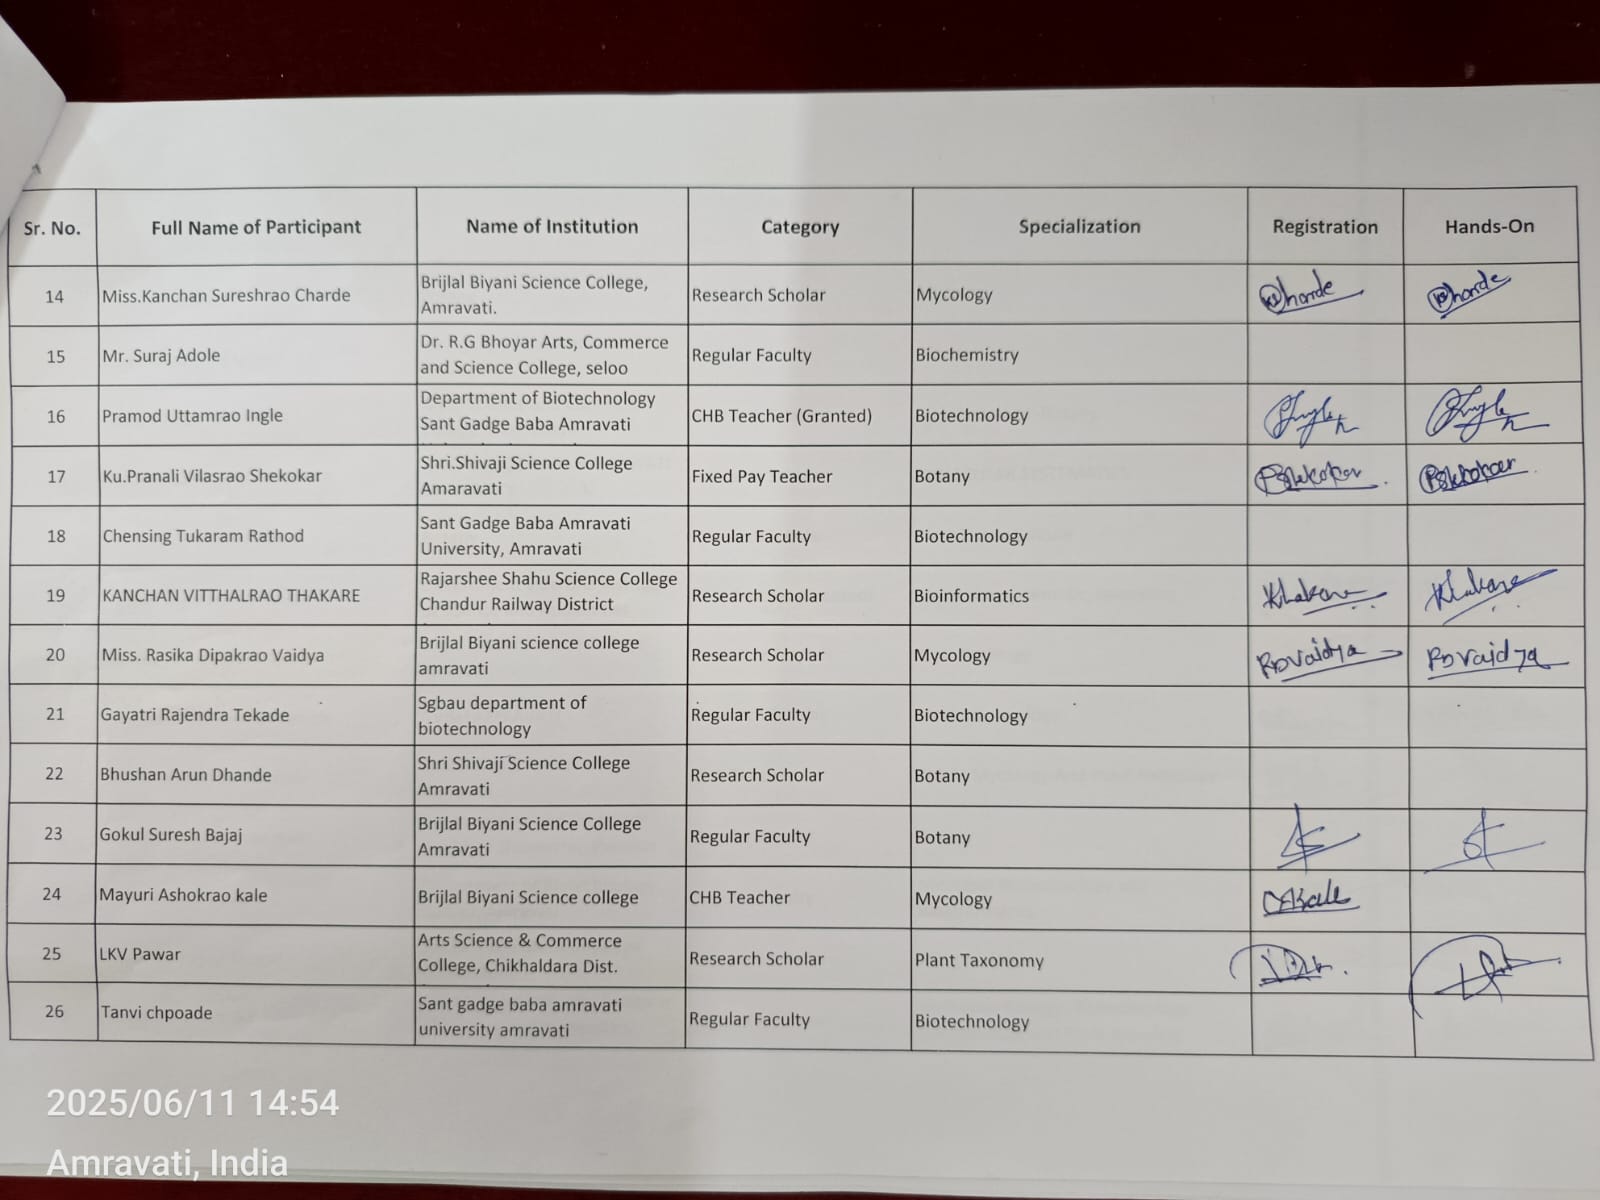 Sr. No. Full Name of Participant Name of Institution Category Specialization Registration Hands-On
14 Miss.Kanchan Sureshrao Charde Brijlal Biyani Science College, Amravati. Research Scholar Mycology
15 Mr. Suraj Adole Dr. R.G Bhoyar Arts, Commerce and Science College, seloo Regular Faculty Biochemistry
16 Pramod Uttamrao Ingle Department of Biotechnology Sant Gadge Baba Amravati CHB Teacher (Granted) Biotechnology
17 Ku.Pranali Vilasrao Shekokar Shri.Shivaji Science College Amaravati Fixed Pay Teacher Botany PShekokar PShekokar
18 Chensing Tukaram Rathod Sant Gadge Baba Amravati University, Amravati Regular Faculty Biotechnology
19 KANCHAN VITTHALRAO THAKARE Rajarshee Shahu Science College Chandur Railway District Research Scholar Bioinformatics
20 Miss. Rasika Dipakrao Vaidya Brijlal Biyani science college amravati Research Scholar Mycology RDVaidya RDVaidya
21 Gayatri Rajendra Tekade Sgbau department of biotechnology Regular Faculty Biotechnology
22 Bhushan Arun Dhande Shri Shivaji Science College Amravati Research Scholar Botany
23 Gokul Suresh Bajaj Brijlal Biyani Science College Amravati Regular Faculty Botany
24 Mayuri Ashokrao kale Brijlal Biyani Science college CHB Teacher Mycology
25 LKV Pawar Arts Science & Commerce College, Chikhaldara Dist. Research Scholar Plant Taxonomy
26 Tanvi chpoade Sant gadge baba amravati university amravati Regular Faculty Biotechnology
2025/06/11 14:54
Amravati, India